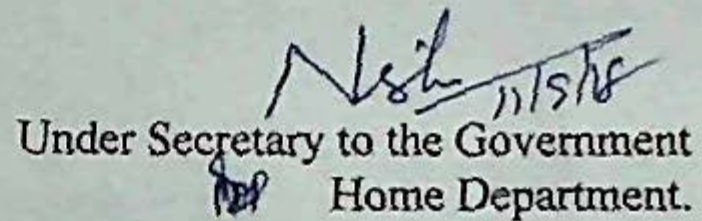 11/5/18
Under Secretary to the Government
Home Department.